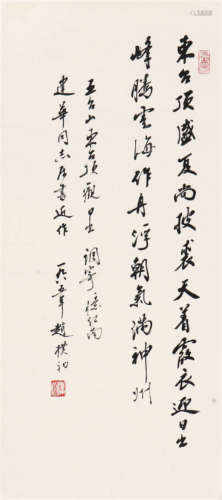 東台頂盛夏尚披裘天着霞衣迎日出
峰騰雲海作舟浮朝氣滿神州
五台山東台頂觀日出 調寄憶江南
建華同志屬書近作
一九八五年 趙樸初